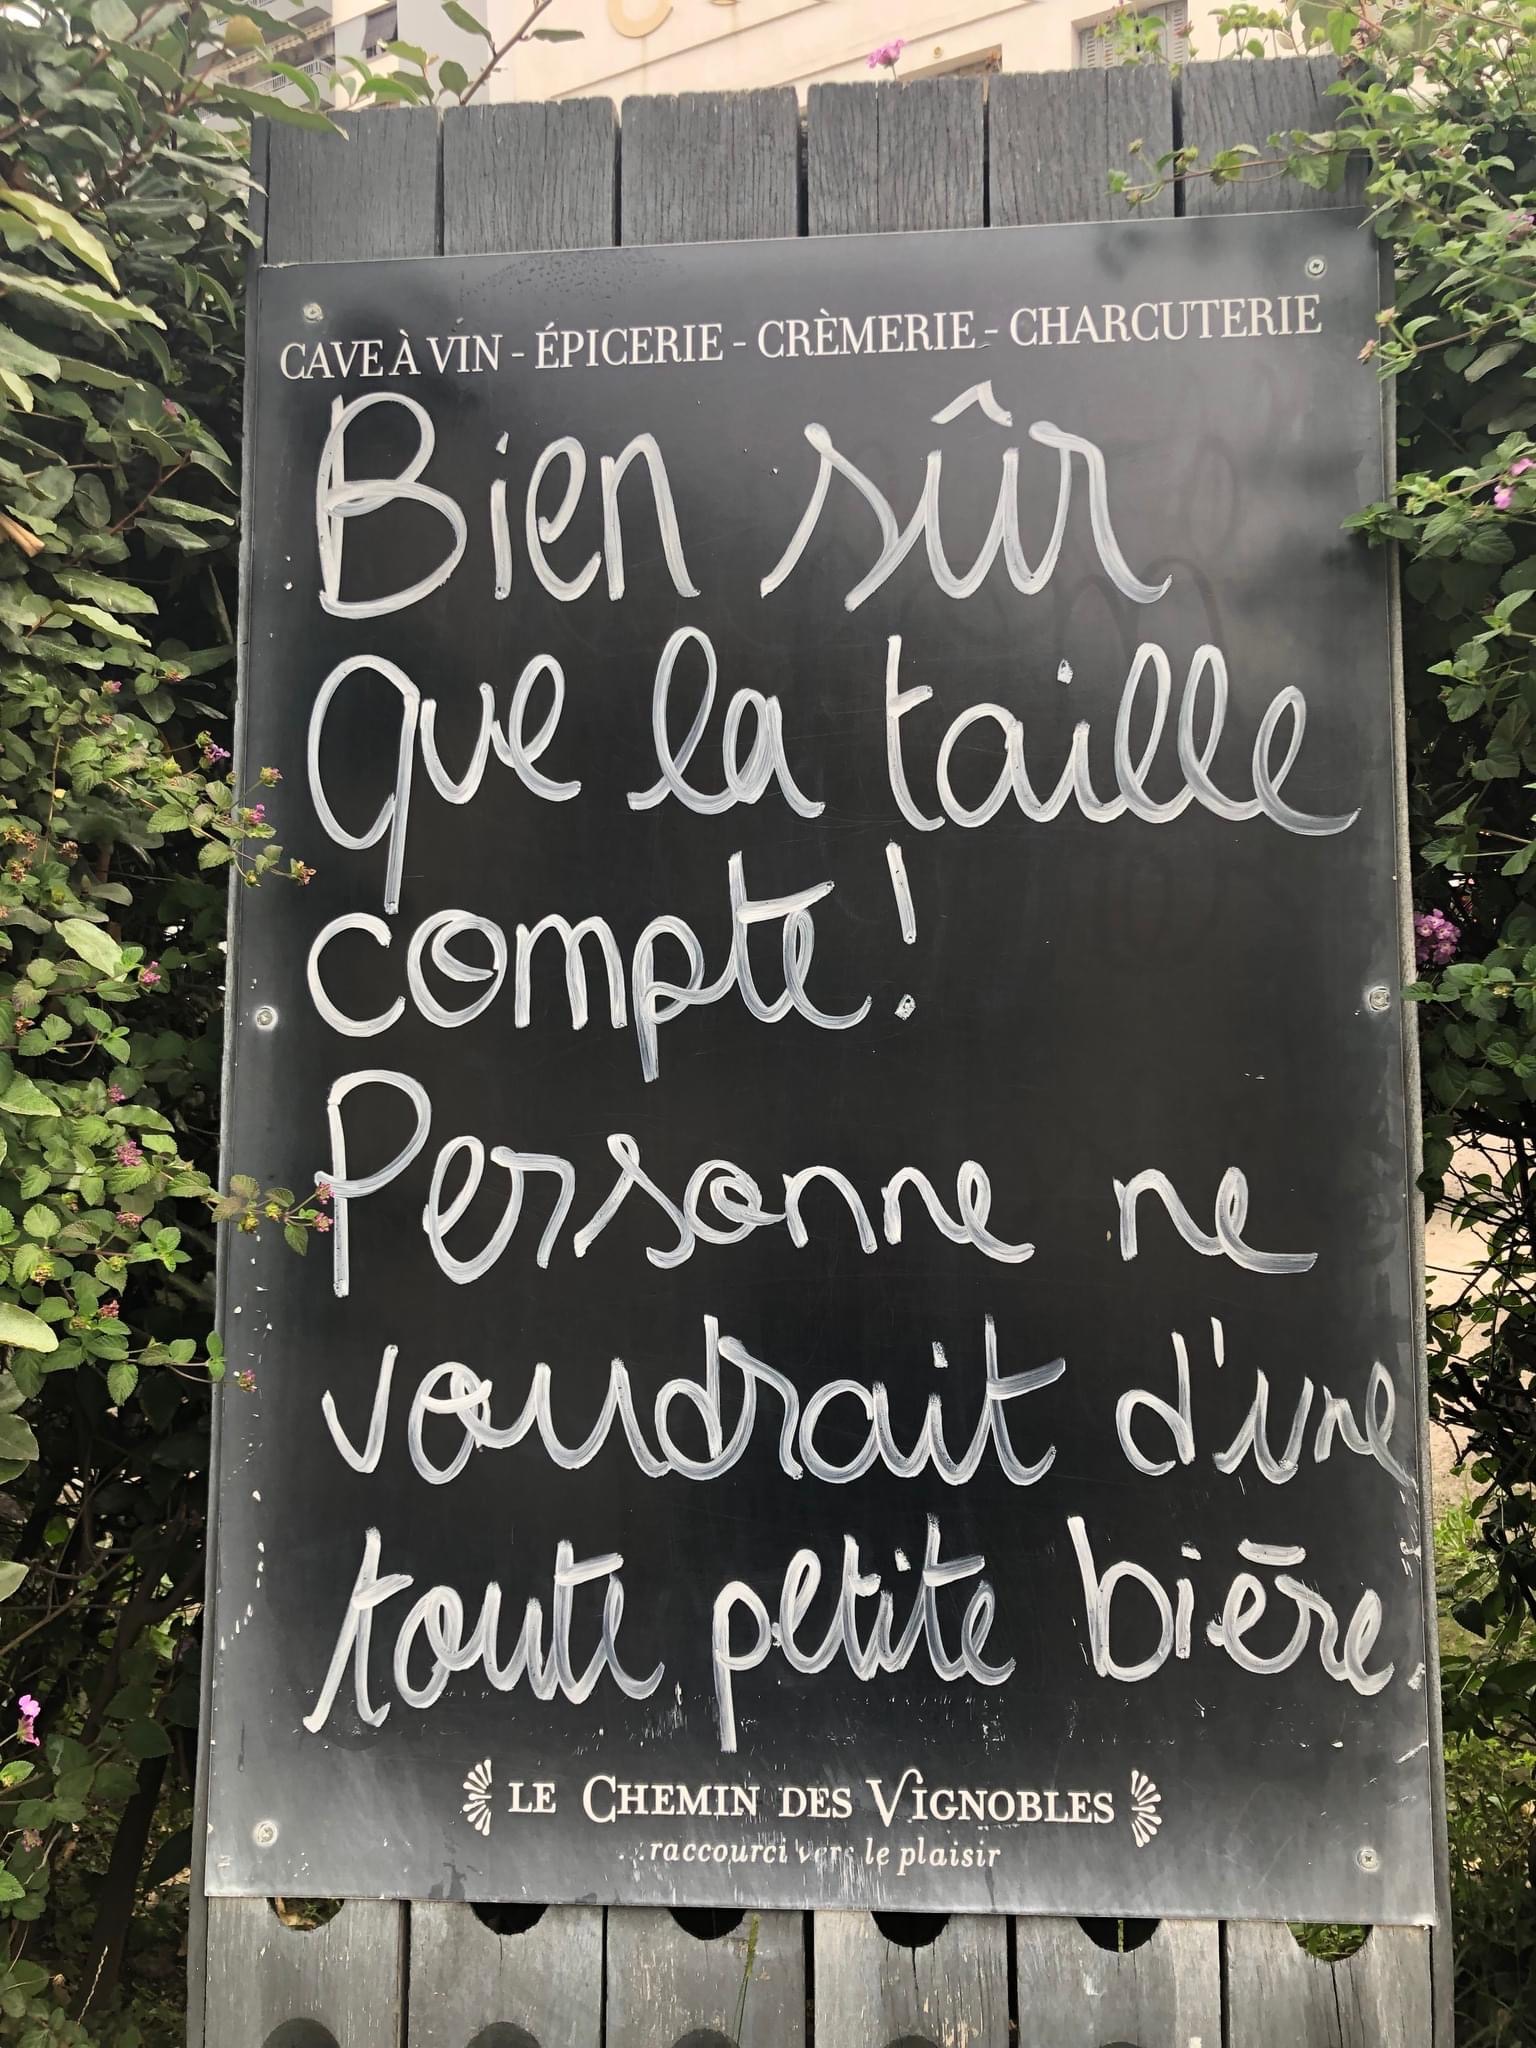 CAVE À VIN - ÉPICERIE - CRÈMERIE - CHARCUTERIE
Bien sûr
que la taille
compte !
Personne ne
voudrait d'une
toute petite bière.
LE CHEMIN DES VIGNOBLES
...raccourci vers le plaisir